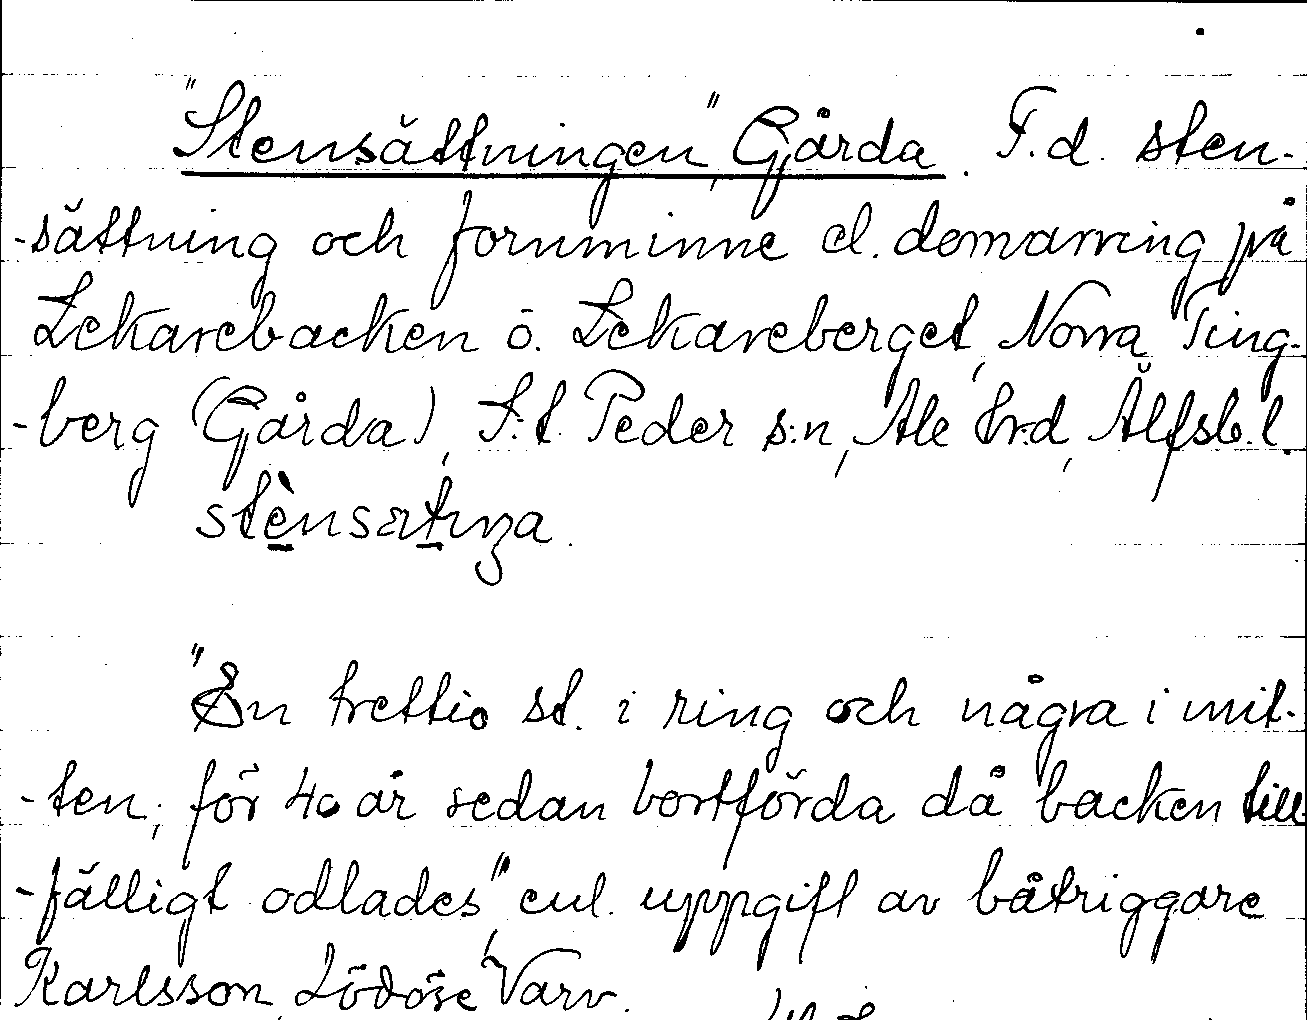 "Stensättningen", Gårda. F.d. sten-
-sättning och fornminne el. domarring på
Lekarebacken ö. Lekareberget, Norra Ting-
-berg (Gårda), S:t Peder s:n, Ale hrd, Älfsb.l.
stènsætnga.
"En trettio st. i ring och några i mit-
-ten, för 40 år sedan bortförda då backen till-
-fälligt odlades", enl. uppgift av båtriggare
Karlsson, Lödöse Varv.